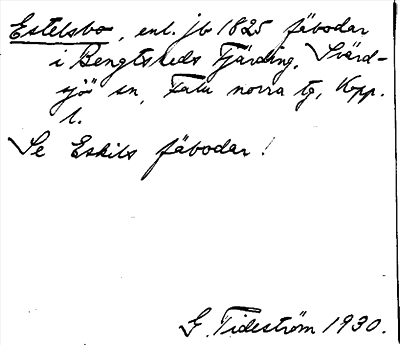 Estelsbo, enl. jb 1825 fäbodar
i Bengtsheds Fjärding, Svärd-
sjö sn, Falu norra tg, Kopp.
l.
Se Eskils fäbodar!
G. Tideström 1930.